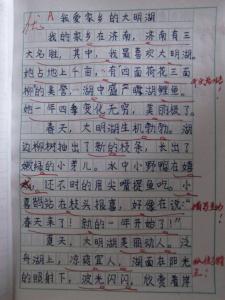 优 A 我爱家乡的大明湖
我的家乡在济南,济南有三
大名胜,其中,我最喜欢大明湖。
她占地上千亩,有四面荷花三面
柳的美誉,湖中盛产鲤鱼。
她一年四季变化无穷,美丽极了。
春天,大明湖生机勃勃。湖
边柳树抽出了新的枝条,长出了
嫩绿的小芽儿。水中小野鸭在嬉
戏,还不时的用尖嘴捉鱼吃。小
喜鹊站在枝头报喜,好像在说:“
春天来了!新的一年开始了!”
夏天,大明湖美丽动人。泛
舟湖上,凉爽宜人。湖面在阳光
的照射下,波光闪闪,欣赏着岸